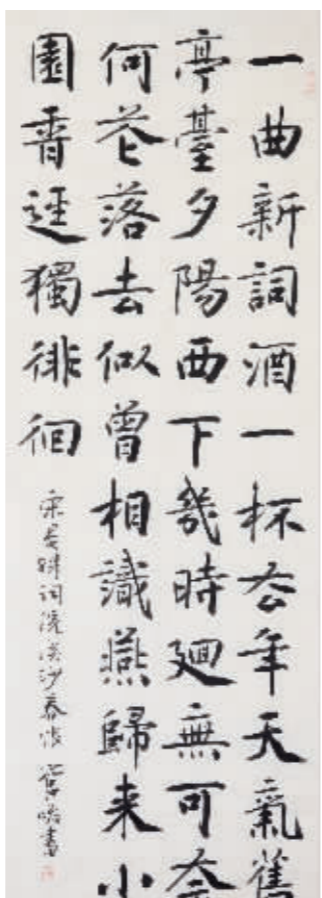 一曲新詞酒一杯去年天氣舊
亭臺夕陽西下幾時廻無可奈
何花落去似曾相識燕歸来小
園香逕獨徘徊
宋晏殊詞浣溪沙春恨 書